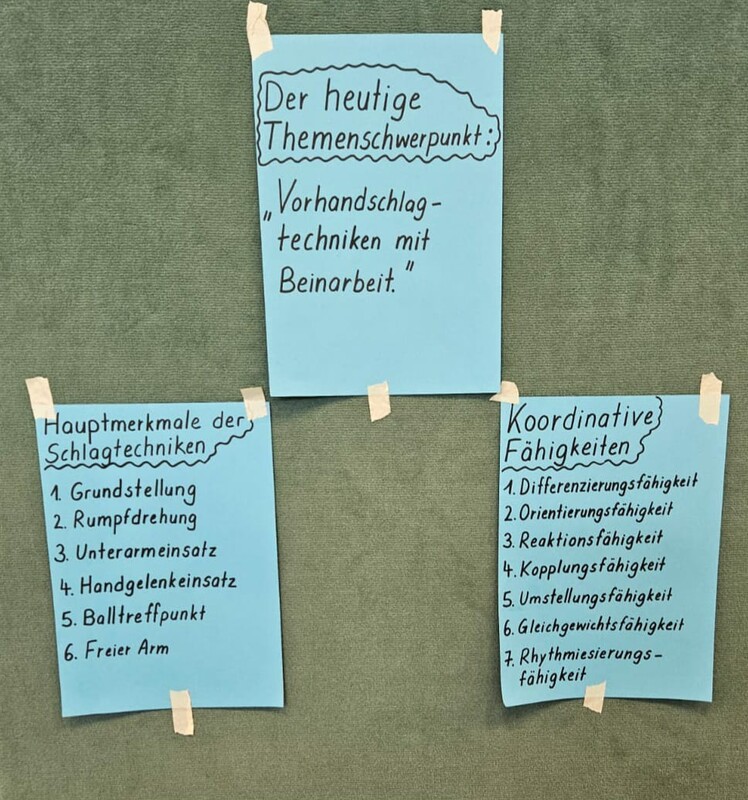 Der heutige
Themenschwerpunkt:
„Vorhandschlag-
techniken mit
Beinarbeit."
Hauptmerkmale der
Schlagtechniken
1. Grundstellung
2. Rumpfdrehung
3. Unterarmeinsatz
4. Handgelenkeinsatz
5. Balltreffpunkt
6. Freier Arm
Koordinative
Fähigkeiten
1. Differenzierungsfähigkeit
2. Orientierungsfähigkeit
3. Reaktionsfähigkeit
4. Kopplungsfähigkeit
5. Umstellungsfähigkeit
6. Gleichgewichtsfähigkeit
7. Rhythmiesierungs-
fähigkeit